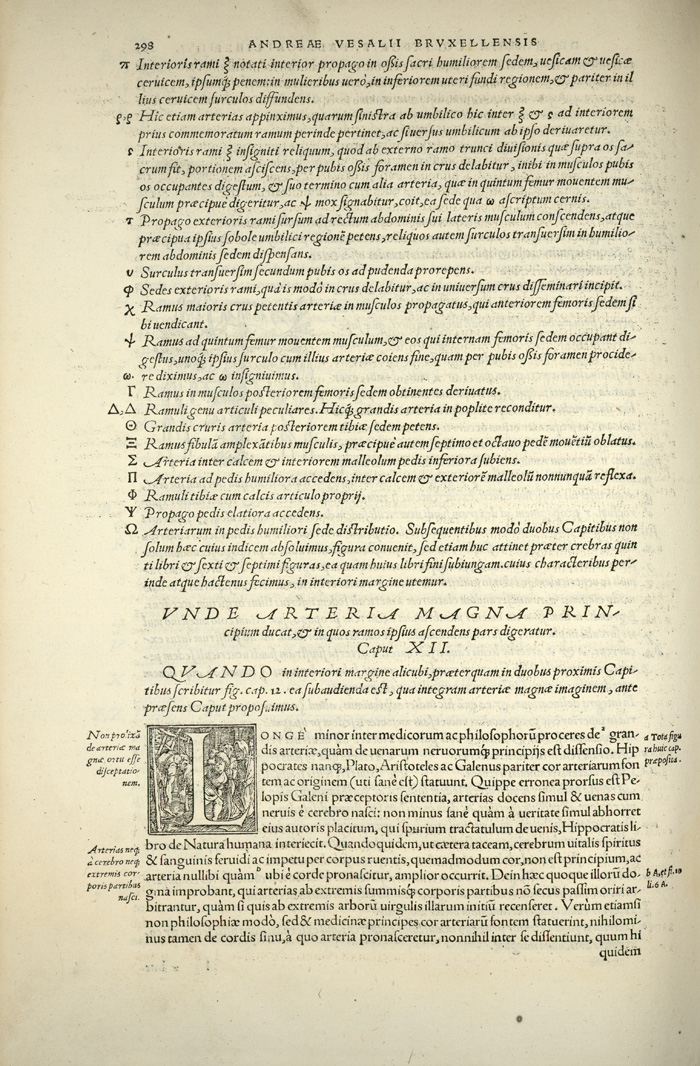 298
ANDREAE VESALII BRVXELLENSIS
π Interioris rami ξ notati interior propago in oßis sacri humiliorem sedem, uesicam & uesicæ
ceruicem, ipsumq́; penem: in mulieribus uerò, in inferiorem uteri fundi regionem, & pariter in il
lius ceruicem surculos diffundens.
ρ,ρ Hic etiam arterias appinximus, quarum sinistra ab umbilico hic inter ξ & ς ad interiorem
prius commemoratum ramum perinde pertinet, ac si uersus umbilicum ab ipso deriuaretur.
ς Interioris rami ξ insigniti reliquum, quod ab externo ramo trunci diuisionis quæ supra os sa/
crum fit, portionem asciscens, per pubis oßis foramen in crus delabitur, inibi in musculos pubis
os occupantes digestum, & suo termino cum alia arteria, quæ in quintum femur mouentem mu/
sculum præcipuè digeritur, ac ψ mox signabitur, coit, ea sede qua ω ascriptum cernis.
τ Propago exterioris rami sursum ad rectum abdominis sui lateris musculum conscendens, atque
præcipua ipsius sobole umbilici regionē petens, reliquos autem surculos transuersim in humilio/
rem abdominis sedem dispensans.
υ Surculus transuersim secundum pubis os ad pudenda prorepens.
φ Sedes exterioris rami, qua is modò in crus delabitur, ac in uniuersum crus disseminari incipit.
χ Ramus maioris crus petentis arteriæ in musculos propagatus, qui anteriorem femoris sedem si
bi uendicant.
ψ Ramus ad quintum femur mouentem musculum, & eos qui internam femoris sedem occupant di/
gestus, unoq́; ipsius surculo cum illius arteriæ coiens fine, quam per pubis oßis foramen procide/
ω. re diximus, ac ω insigniuimus.
Γ Ramus in musculos posteriorem femoris sedem obtinentes deriuatus.
Δ,Δ Ramuli genu articuli peculiares. Hicq́; grandis arteria in poplite reconditur.
Θ Grandis cruris arteria posteriorem tibiæ sedem petens.
Ξ Ramus fibulā amplexātibus musculis, præcipuè autem septimo et octauo pedē mouētiū oblatus.
Σ Arteria inter calcem & interiorem malleolum pedis inferiora subiens.
Π Arteria ad pedis humiliora accedens, inter calcem & exteriorē malleolū nonnunquā reflexa.
Φ Ramuli tibiæ cum calcis articulo proprij.
Ψ Propago pedis elatiora accedens.
Ω Arteriarum in pedis humiliori sede distributio. Subsequentibus modò duobus Capitibus non
solum hæc cuius indicem absoluimus, figura conuenit, sed etiam huc attinet præter crebras quin
ti libri & sexti & septimi figuras, ea quam huius libri fini subiungam. cuius characteribus per/
inde atque hactenus fecimus, in interiori margine utemur.
VNDE ARTERIA MAGNA PRIN/
cipium ducat, & in quos ramos ipsius ascendens pars digeratur.
Caput XII.
QVANDO in interiori margine alicubi, præterquam in duobus proximis Capi/
tibus scribitur fig. cap. 12. ea subaudienda est, qua integram arteriæ magnæ imaginem, ante
præsens Caput proposuimus.
Non prolixā
de arteriæ ma
gnæ ortu esse
disceptatio-
nem.
LONGE minor inter medicorum ac philosophorū proceres de ᵃ gran/
dis arteriæ, quàm de uenarum neruorumq́; principijs est dissensio. Hip
pocrates nanq́;, Plato, Aristoteles ac Galenus pariter cor arteriarum fon
tem ac originem (uti sanè est) statuunt. Quippe erronea prorsus est Pe-
lopis Galeni præceptoris sententia, arterias docens simul & uenas cum
neruis è cerebro nasci: non minus sanè quàm à ueritate simul abhorret
eius autoris placitum, qui spurium tractatulum de uenis, Hippocratis li-
bro de Natura humana interiecit. Quandoquidem, ut cætera taceam, cerebrum uitalis spiritus
& sanguinis feruidi ac impetu per corpus ruentis, quemadmodum cor, non est principium, ac
arteria nullibi quàm ᵇ ubi è corde pronascitur, amplior occurrit. Dein hæc quoque illorū do-
gma improbant, qui arterias ab extremis summisq́; corporis partibus nō secus passim oriri ar-
bitrantur, quàm si quis ab extremis arborū uirgulis illarum initiū recenseret. Verùm etiamsi
non philosophiæ modò, sed & medicinæ principes cor arteriarū fontem statuerint, nihilomi-
nus tamen de cordis sinu, à quo arteria pronasceretur, nonnihil inter se dissentiunt, quum hi
quidem
a Tota figu
ra huic cap.
præposita.
Arterias neq́;
à cerebro neq́;
extremis cor-
poris partibus
nasci.
b A, et fi. 10
li. 6 A.